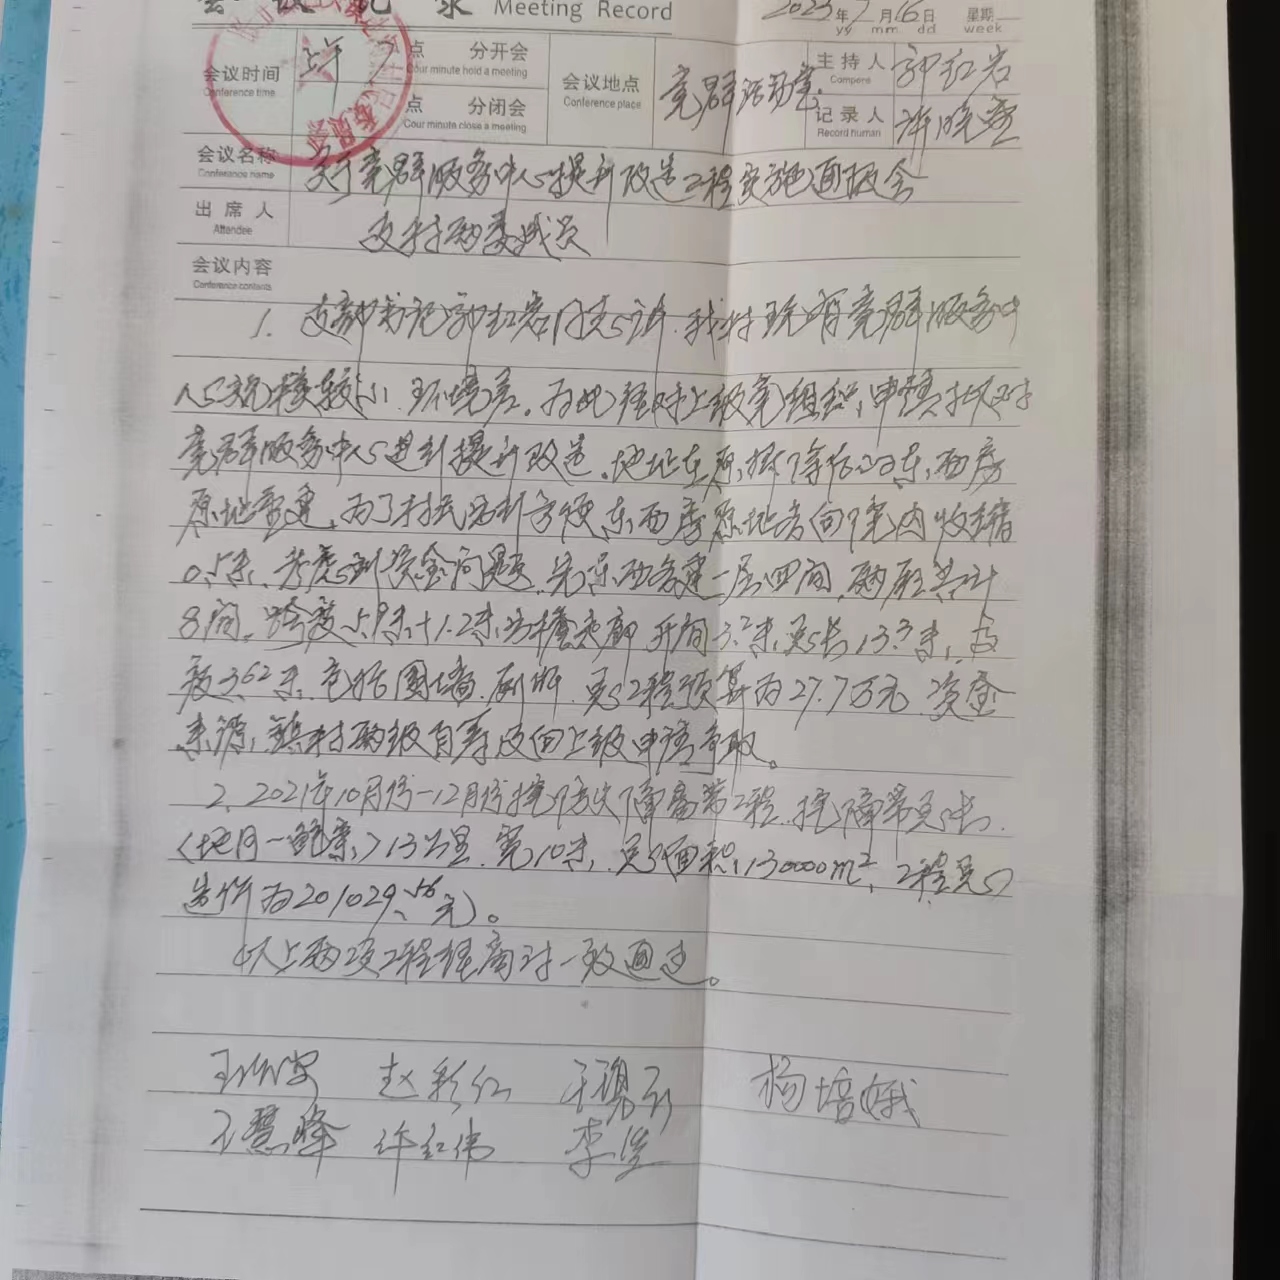 会议记录 Meeting Record
2023年7月16日 星期
yy mm dd week
会议时间 Conference time
上午 点 分开会
Cour minute hold a meeting
点 分闭会
Cour minute close a meeting
会议地点 Conference place
党群活动室
主持人 Compere 郭红岩
记录人 Record human 许晓
会议名称 Conference name
关于党群服务中心提升改造工程实施通报会
出席人 Attendee
支村两委成员
会议内容 Conference contents
1. 支部书记郭红岩同志讲 我村现有党群服务中
心规模较小、环境差。为此经对上级党组织申请批对
党群服务中心进行提升改造。地址在原 东、西房
原地重建,为了村民出行方便东西房原地各向 内收缩
0.5米、考虑到资金问题,先东西各建一层四间,两厢共计
8间,跨度5.9米+1.2米 走廊 开间3.2米,总长13.3米,高
度3.62米,包括围墙、厕所,总工程预算为27.7万元 资金
来源,镇村两级自筹及向上级申请争取。
2、2021年10月份-12月份挖防火隔离带工程,挖隔离带总长
13公里,宽10米,总面积130000m²,工程总
造价为201029.56元。
以上两项工程经商讨一致通过。
赵彩红 杨培娥
王慧峰 许红伟 李